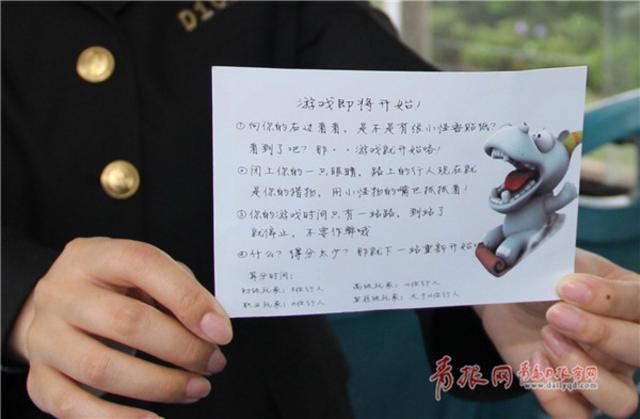 D10
游戏即将开始!
①向你的右边看看,是不是有很小怪兽贴纸?
看到了吧?那··游戏就开始咯!
②闭上你的一只眼睛,路上的行人现在就
是你的猎物,用小怪物的嘴巴抓抓看!
③你的游戏时间只有一站路,到站了
就停止,不要作弊哦
④什么?得分太少?那就下一站重新开始
算分时间:
初级玩家: 位行人 高级玩家: 位行人
职业玩家: 位行人 玩家:大于 位行人
青报网 青岛日报官网
www.dailyqd.com